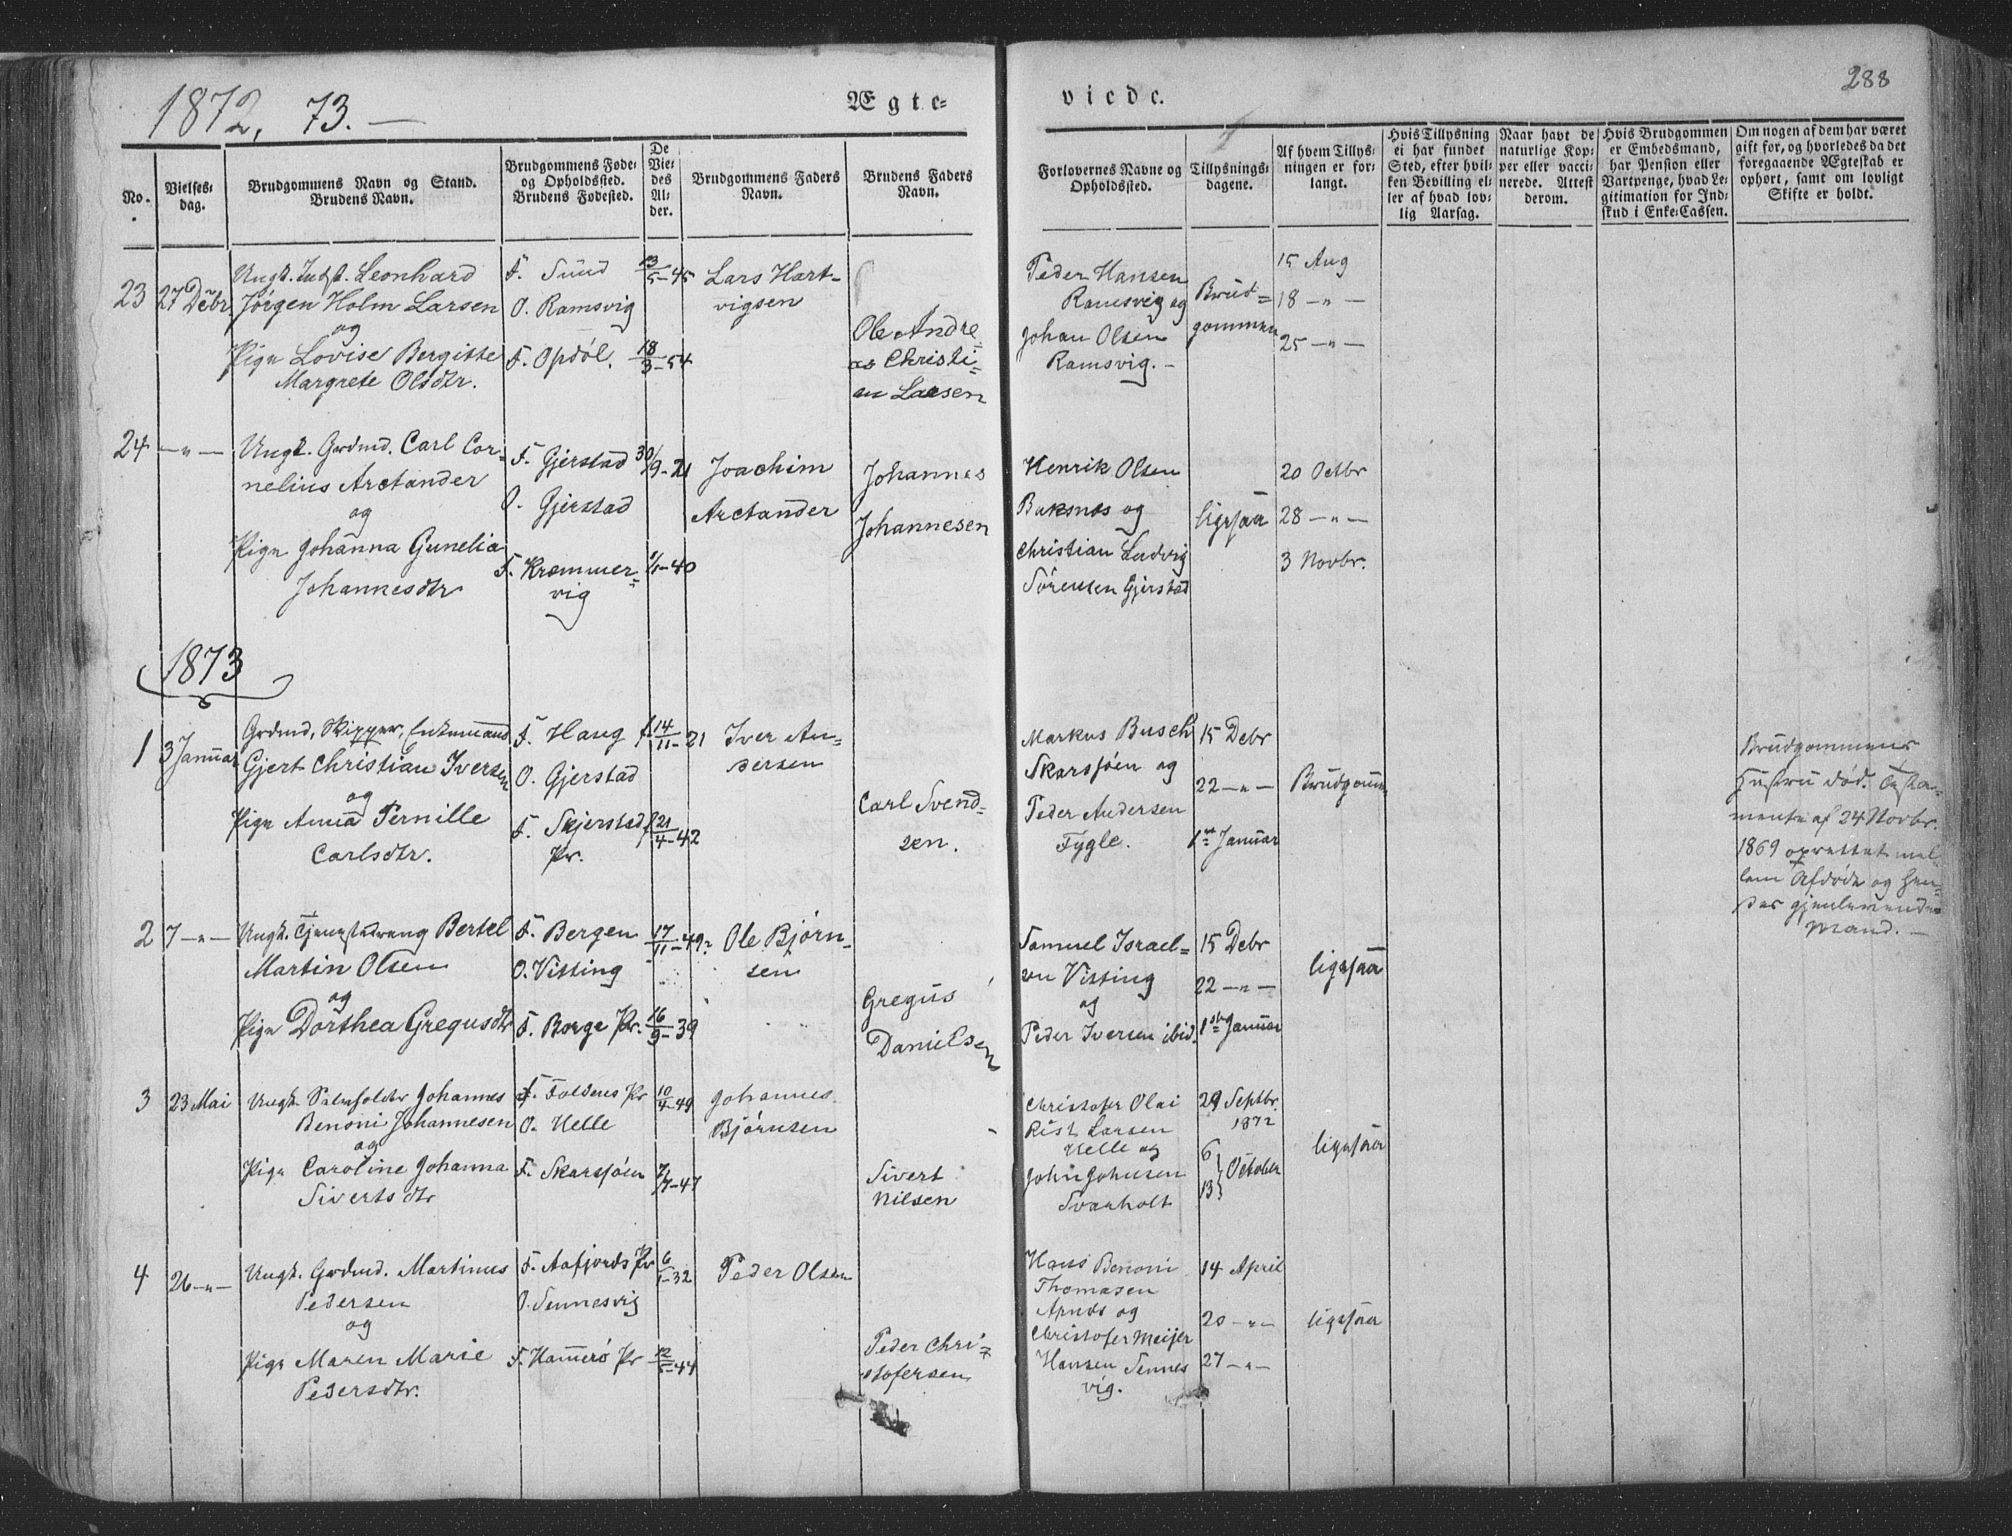 1872, 73. —
Ægte-
viede.
288
No.
Vielses-
dag.
Brudgommens Navn og Stand.
Brudens Navn.
Brudgommens Føde-
og Opholdssted.
Brudens Fødested.
De
Vie-
des
Al-
der.
Brudgommens Faders
Navn.
Brudens Faders
Navn.
Forlovernes Navne og
Opholdssted.
Tillysnings-
dagene.
Af hvem Tillys-
ningen er for-
langt.
Hvis Tillysning
ei har fundet
Sted, efter hvil-
ken Bevilling el-
ler af hvad lov-
lig Aarsag.
Naar havt de
naturlige Kop-
per eller vacci-
nerede. Attest
derom.
Hvis Brudgommen
er Embedsmand,
har Pension eller
Vartpenge, hvad Le-
gitimation for Ind-
skud i Enke-Cassen.
Om nogen af dem har været
gift før, og hvorledes da det
foregaaende Ægteskab er
ophørt, samt om lovligt
Skifte er holdt.
23
27 Debr
Ungk. Indst. Leonhard
Jørgen Holm Larsen
og
Pige Lovise Bergitte
Margrete Olsdtr.
F. Sund
O. Ramsvig
F. Opdöl.
13/5-45
18/3-54
Lars Hart-
vigsen
Ole Andre-
as Christi-
an Larsen
Peder Hansen
Ramsvig og
Johan Olsen
Ramsvig. -
Brud-
gommen
15 Aug
18 — " —
25 — " —
24
— " —
Ungk. Grdmd. Carl Cor-
nelius Arctander
og
Pige Johanna Gunelia
Johannesdtr
F. Gjerstad
O. Gjerstad
F. Kræmmer-
vig
30/9-21
1/1-40
Joachim
Arctander
Johannes
Johannesen
Henrik Olsen
Baksnes og
Christian Ludvig
Sørensen Gjerstad
ligesaa
20 Octbr
28 — " —
3 Novbr.
1873
1
3 Januar
Grdmd, Skipper, Enkemand
Gjert Christian Iversen
og
Pige Anna Pernille
Carlsdtr.
F. Haug
O. Gjerstad
F. Skjerstad
Pr.
14/11-21
21/4-42
Iver An-
dersen
Carl Svend-
sen.
Markus Busch
Skarsjöen og
Peder Andersen
Fygle.
15 Debr
22 — " —
1ste Januar
Brudgomm
Brudgommens
Hustru död. Testa-
mente af 24 Novbr.
1869 oprettet mel-
lem Afdöde og hen-
des gjenlevende
Mand. —
2
7 — " —
Ungk. Tjenestedreng Bertel
Martin Olsen
og
Pige Dorthea Gregusdtr
F. Bergen
O. Vitting
F. Borge Pr.
17/11-49
16/9-39
Ole Bjørn-
sen
Gregus
Danielsen
Samuel Israel-
sen Vitting
og
Peder Iversen ibid.
15 Debr
22 — " —
1ste Januar
ligesaa
3
23 Mai
Ungk. Johannes
Benoni Johannesen
og
Pige Caroline Johanna
Sivertsdtr
F. Foldens Pr
O. Helle
F. Skarsjöen
10/4-49
7/7-47
Johannes
Bjørnsen
Sivert
Nilsen
Christofer Olai
Rist Larsen
Helle og
John Johnsen
Svarholt
29 Septbr.
1872
6
13 } October
ligesaa
4
26 — " —
Ungk. Grdmd. Martinus
Pedersen
og
Pige Maren Marie
Pedersdtr.
F. Aafjords Pr
O. Sennesvig
F. Hamerö Pr
6/1-32
12/5-44
Peder Olsen
Peder Chri-
stofersen
Hans Benoni
Thomasen
og
Christofer Meijer
Hansen Sennes
vig.
14 April
20 — " —
27 — " —
ligesaa